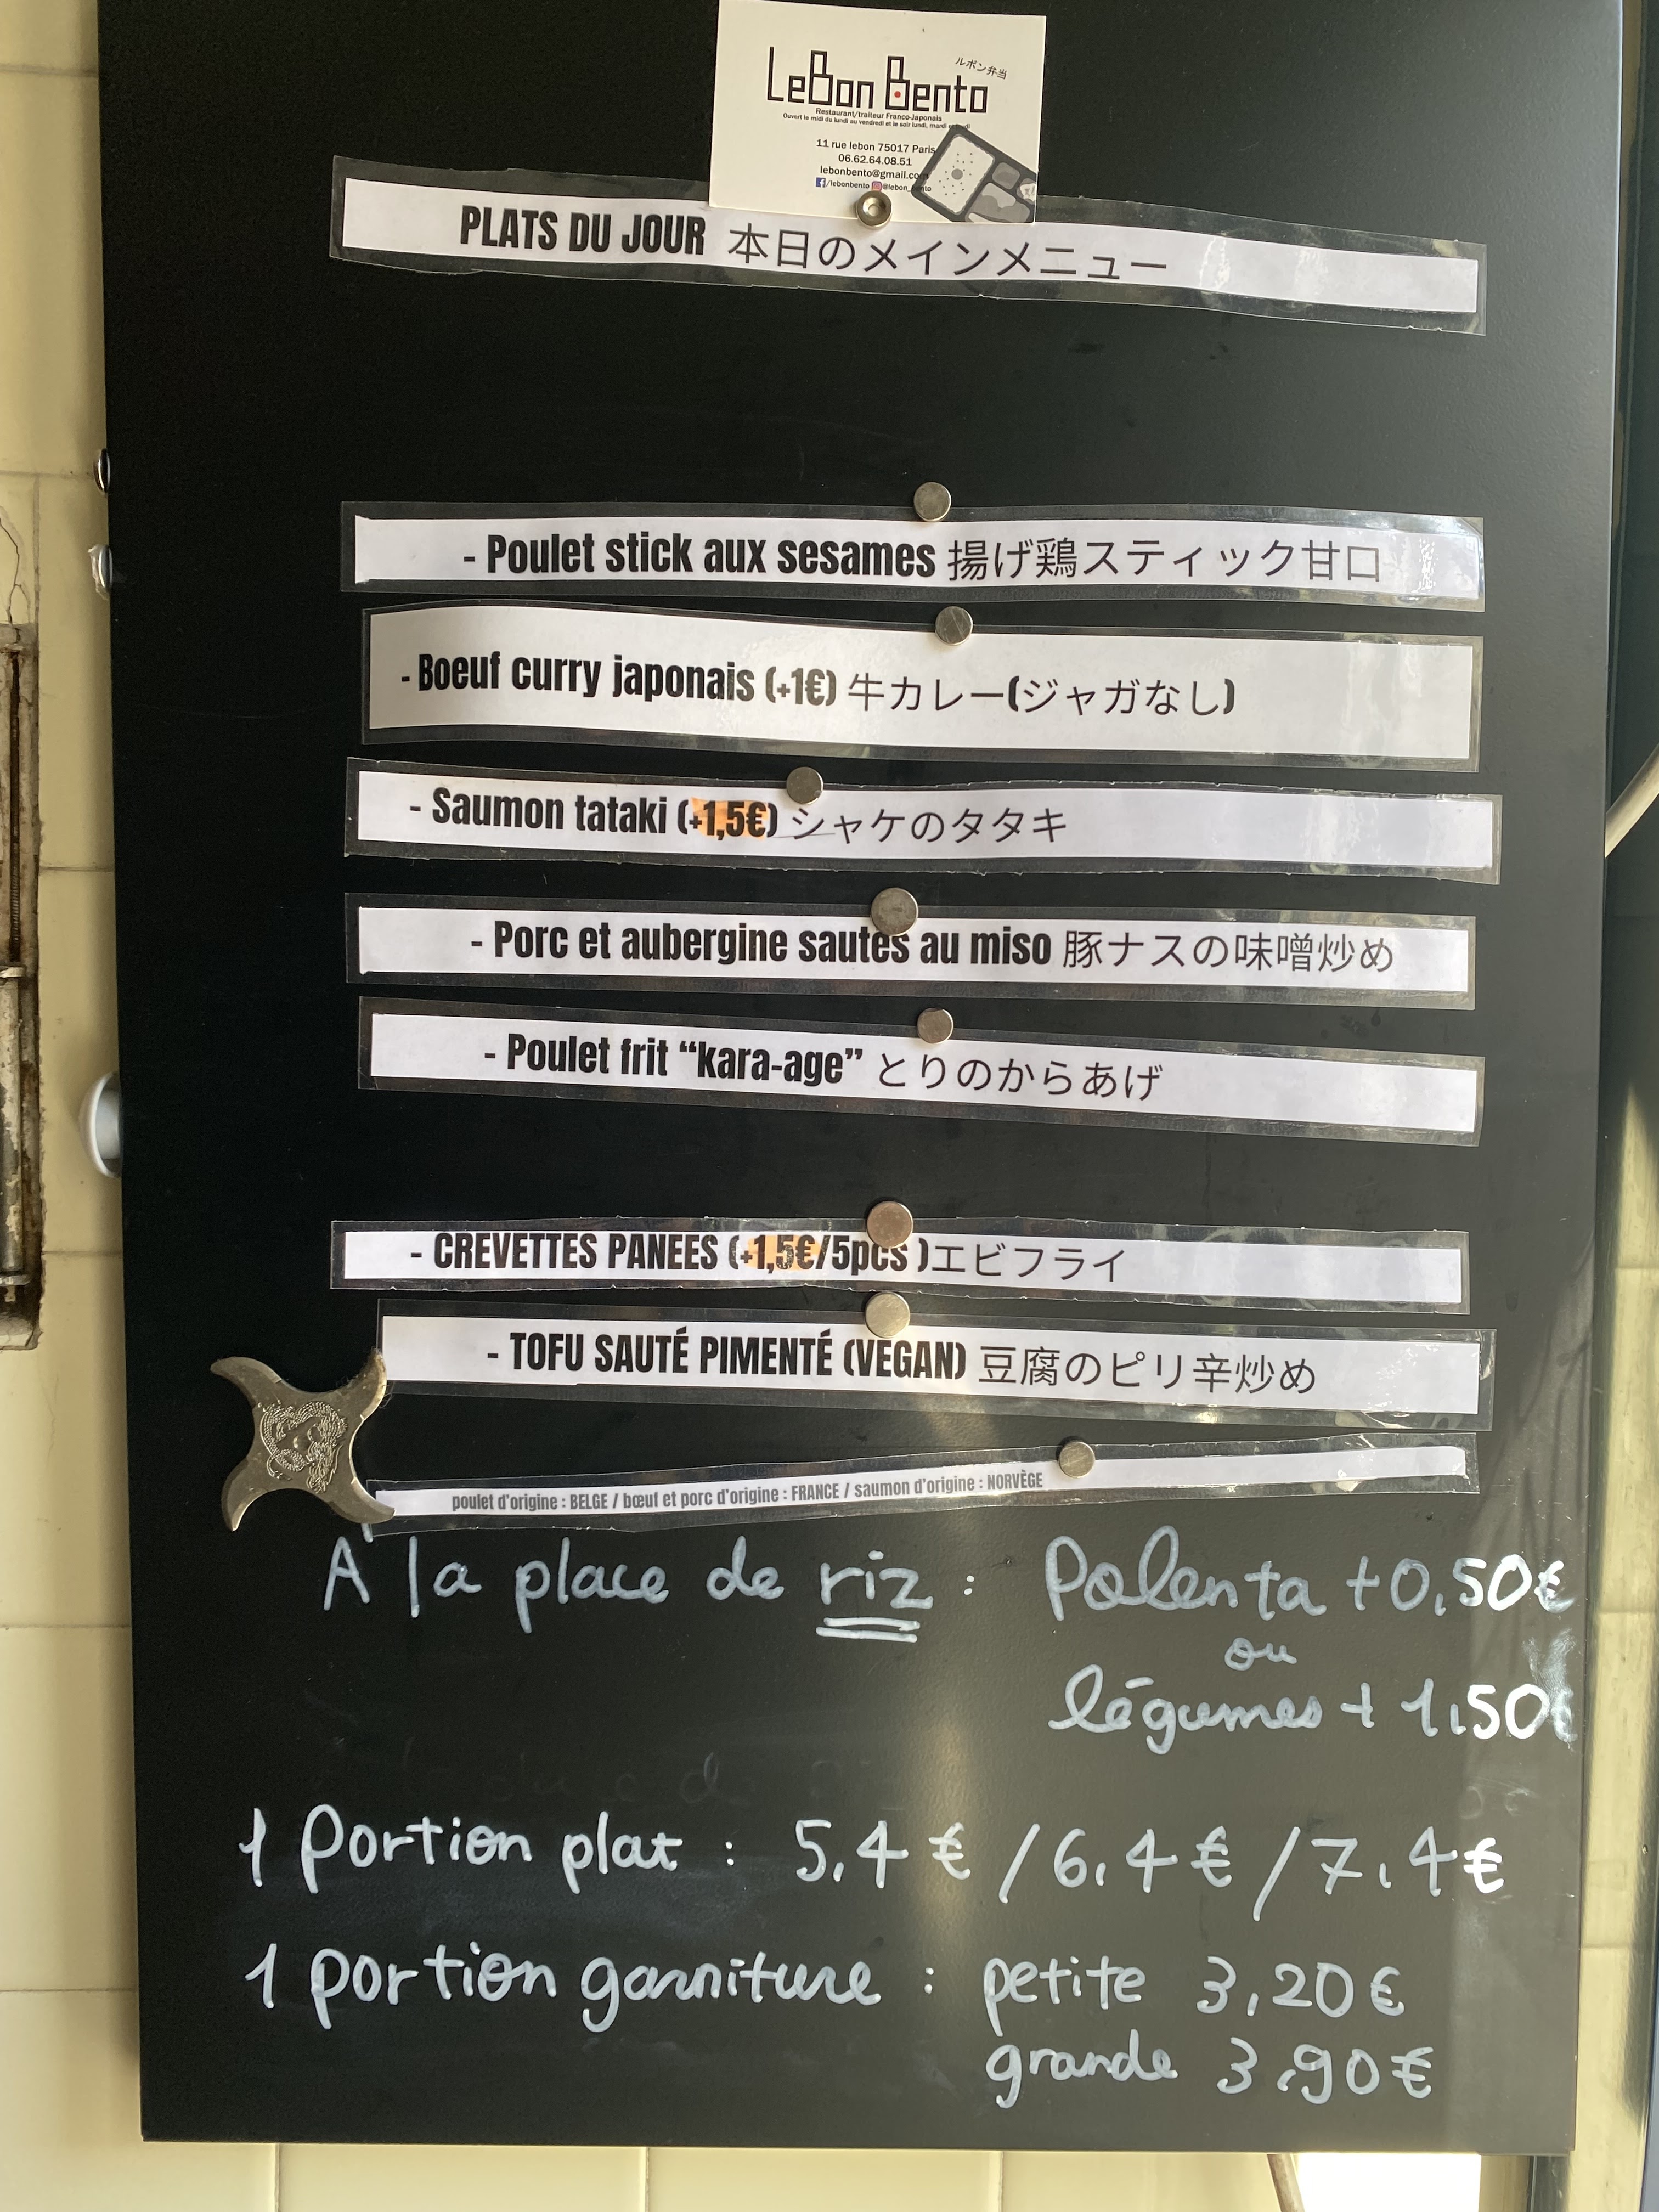 LeBon Bento
ルボン弁当
Restaurant/traiteur Franco-Japonais
Ouvert le midi du lundi au vendredi et le soir lundi, mardi
11 rue lebon 75017 Paris
06.62.64.08.51
lebonbento@gmail.com
/lebonbento @lebon_
PLATS DU JOUR 本日のメインメニュー
- Poulet stick aux sesames 揚げ鶏スティック甘口
- Boeuf curry japonais (+1€) 牛カレー(ジャガなし)
- Saumon tataki (+1,5€) シャケのタタキ
- Porc et aubergine sautés au miso 豚ナスの味噌炒め
- Poulet frit “kara-age” とりのからあげ
- CREVETTES PANEES (+1,5€/5pcs )エビフライ
- TOFU SAUTÉ PIMENTÉ (VEGAN) 豆腐のピリ辛炒め
poulet d'origine : BELGE / bœuf et porc d'origine : FRANCE / saumon d'origine : NORVÈGE
A la place de riz : Polenta +0,50€
ou
légumes + 1,50€
1 Portion plat : 5,4 € / 6,4 € / 7,4 €
1 portion garniture : petite 3,20€
grande 3,90€